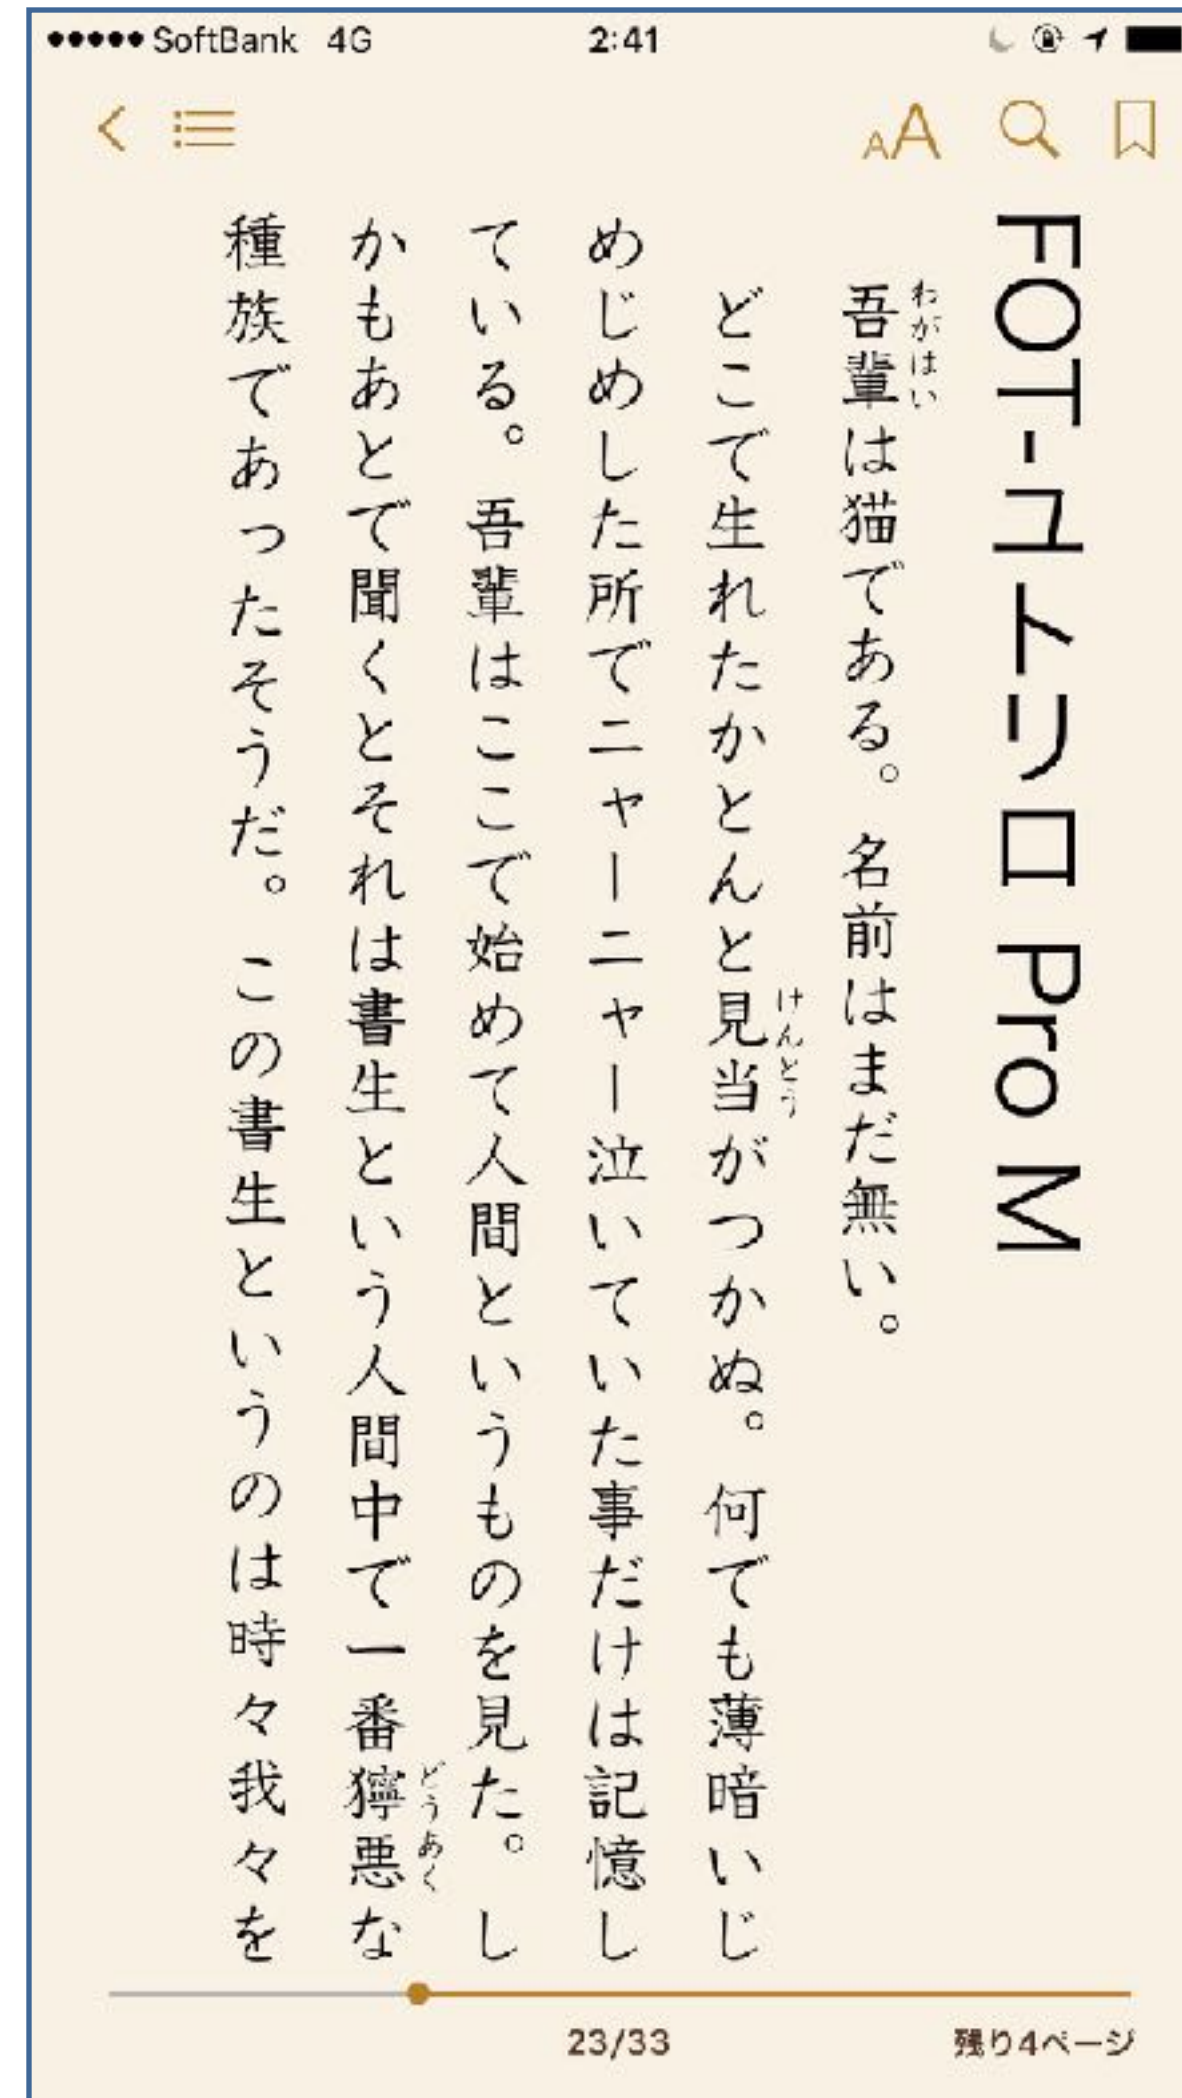 ●●●●● SoftBank 4G 2:41
AA
FOT-ユトリロ Pro M
吾輩は猫である。名前はまだ無い。
わがはい
どこで生れたかとんと見当がつかぬ。何でも薄暗いじ
けんとう
めじめした所でニャーニャー泣いていた事だけは記憶し
ている。吾輩はここで始めて人間というものを見た。し
かもあとで聞くとそれは書生という人間中で一番獰悪な
どうあく
種族であったそうだ。この書生というのは時々我々を
23/33 残り4ページ